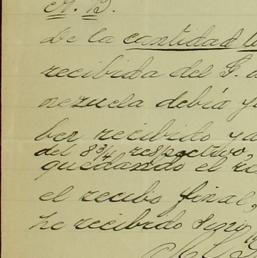 N. B.
de la cantidad
recibida del G.
nezuela debía
ber recibido ya
del 8¾ respectivo,
quedando el
el recibo final,
he recibido